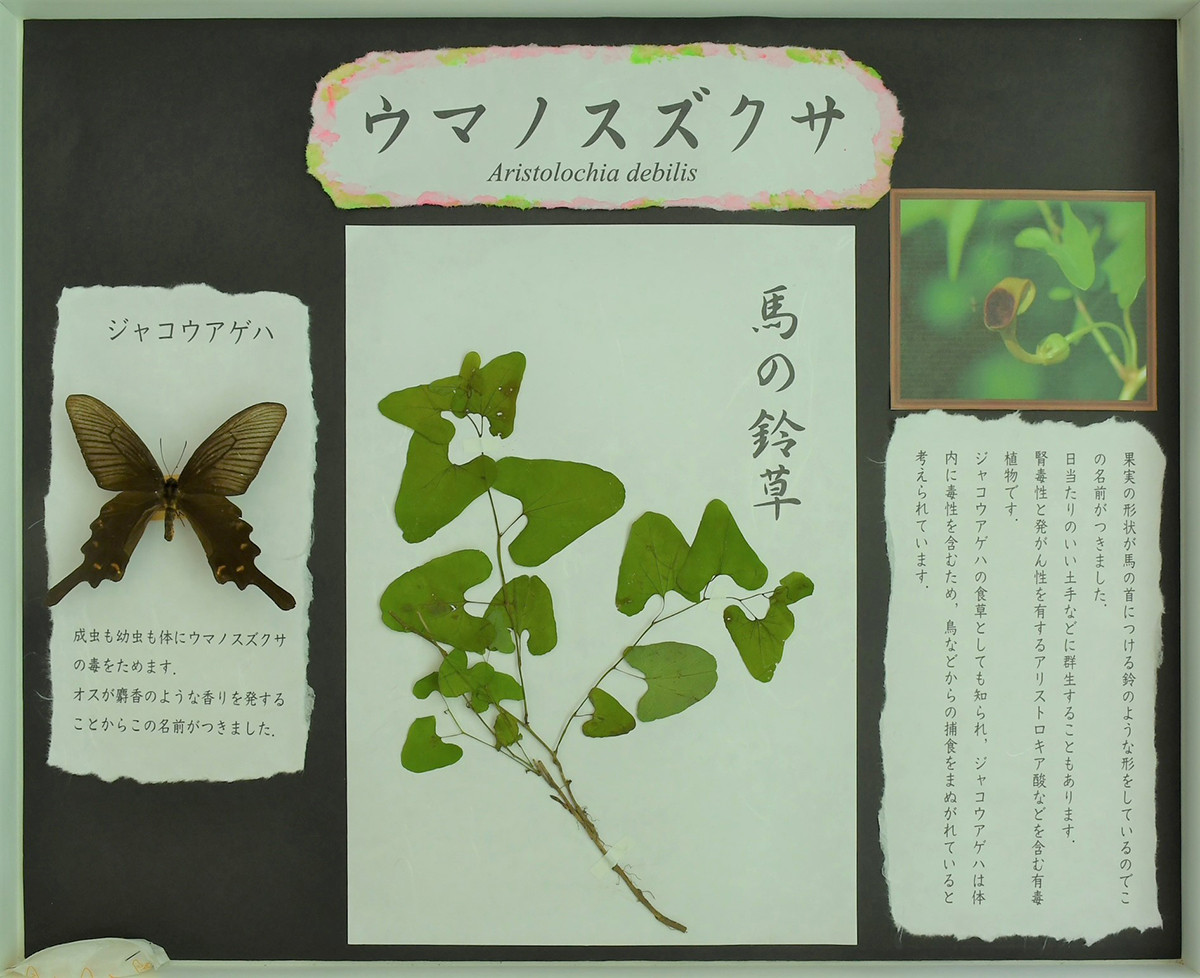 ウマノスズクサ
Aristolochia debilis
ジャコウアゲハ
成虫も幼虫も体にウマノスズクサ
の毒をためます.
オスが麝香のような香りを発する
ことからこの名前がつきました.
馬の鈴草
果実の形状が馬の首につける鈴のような形をしているのでこ
の名前がつきました.
日当たりのいい土手などに群生することもあります.
腎毒性と発がん性を有するアリストロキア酸などを含む有毒
植物です.
ジャコウアゲハの食草としても知られ, ジャコウアゲハは体
内に毒性を含むため, 鳥などからの捕食をまぬがれていると
考えられています.